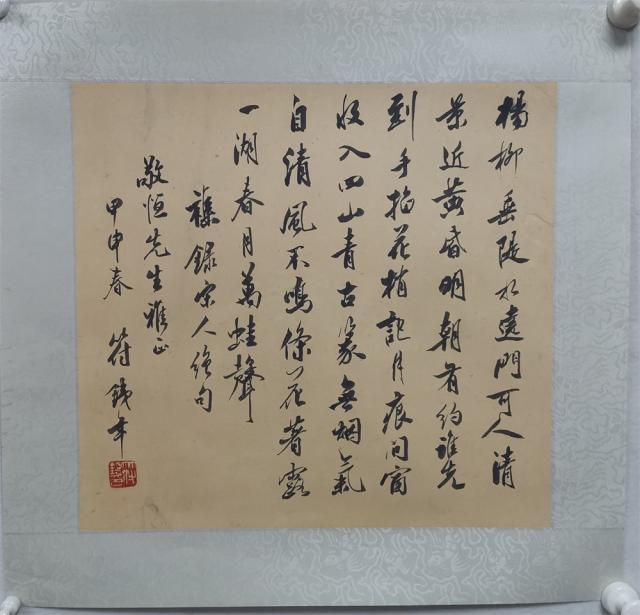 楊柳垂隄水遶門可人清
景近黃昏明朝有約誰先
到手掐花梢記月痕開窗
收入四山青古篆無烟氣
自清風不鳴條花著露
一湖春月萬蛙聲
襍錄宋人絶句
敬恒先生雅正
甲申春 符鐵年